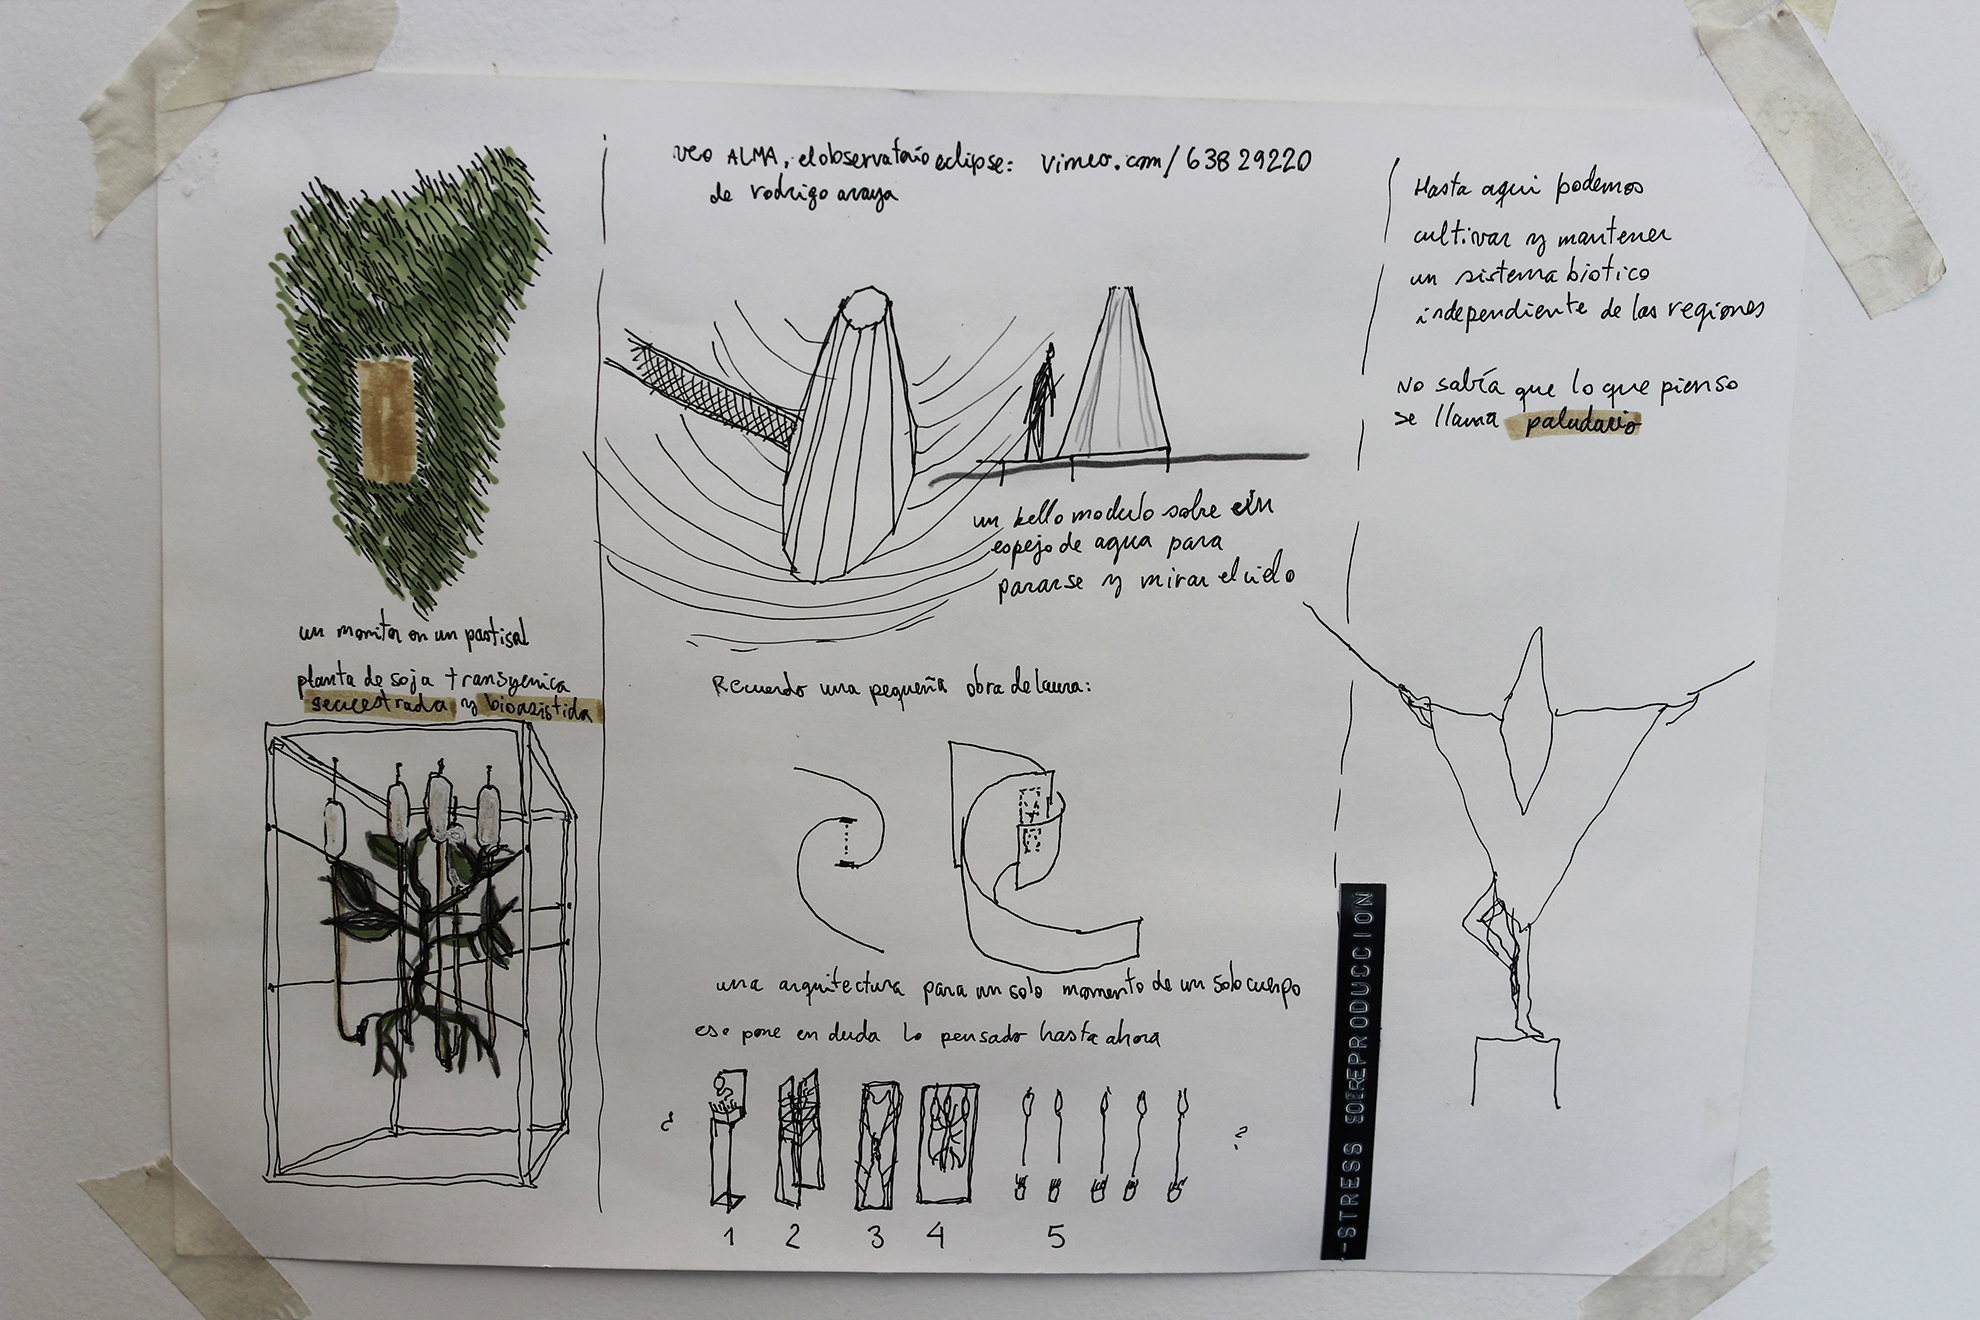 un monitor en un pastisal
planta de soja transgenica
secuestrada y bioasistida
veo ALMA, el observatorio eclipse: vimeo.com/63829220
de rodrigo araya
un bello modulo sobre un
espejo de agua para
pararse y mirar el cielo
Recuerdo una pequeña obra de laura:
una arquitectura para un solo momento de un solo cuerpo
ese pone en duda lo pensado hasta ahora
¿ ?
1 2 3 4 5
Hasta aqui podemos
cultivar y mantener
un sistema biotico
independiente de las regiones
No sabía que lo que pienso
se llama paludario
-STRESS SOBREPRODUCCION